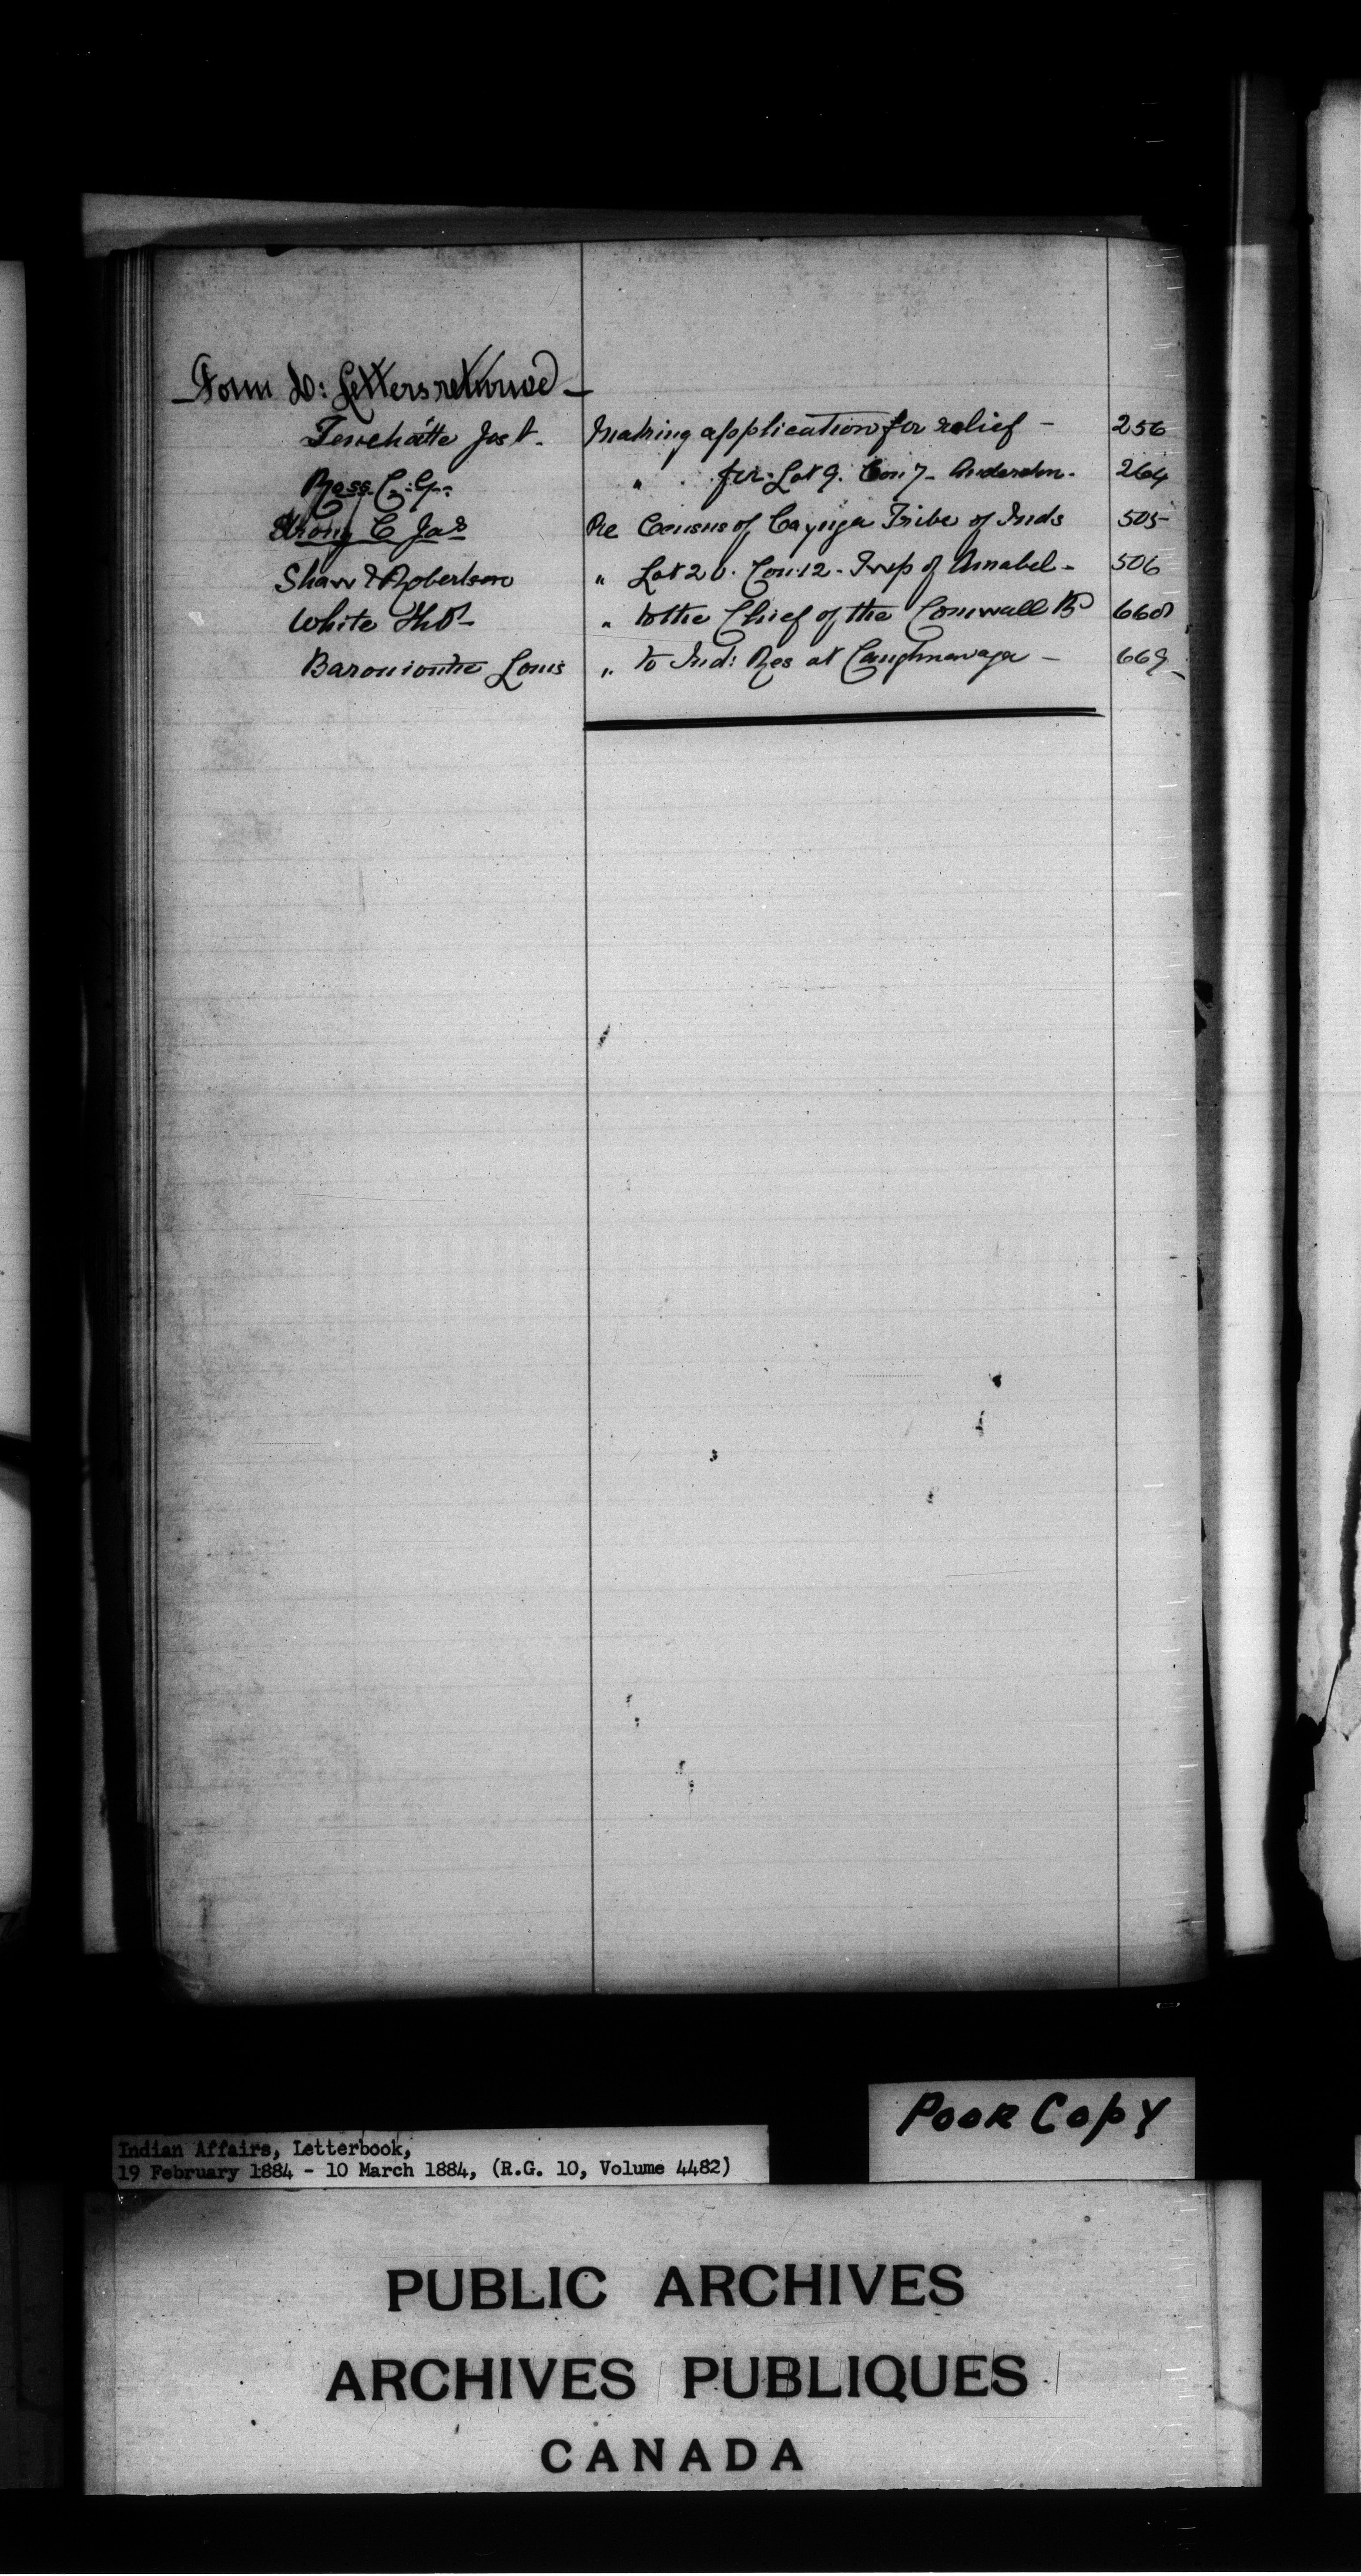 Form D: Letters returned —
Tewehatte Jos t. Making application for relief — 256
Ross. C. G. " for Lot 9. Con 7 - Anderdon. 264
Strong C Jas Re Census of Cayuga Tribe of Inds 505
Shaw & Robertson " Lot 20. Con. 12 - Twp of Amabel - 506
White Thos - " to the Chief of the Cornwall Bd 660
Louis " to Ind: Res at Caughnawaga — 669
Poor Copy
Indian Affairs, Letterbook,
19 February 1884 - 10 March 1884, (R.G. 10, Volume 4482)
PUBLIC ARCHIVES
ARCHIVES PUBLIQUES
CANADA